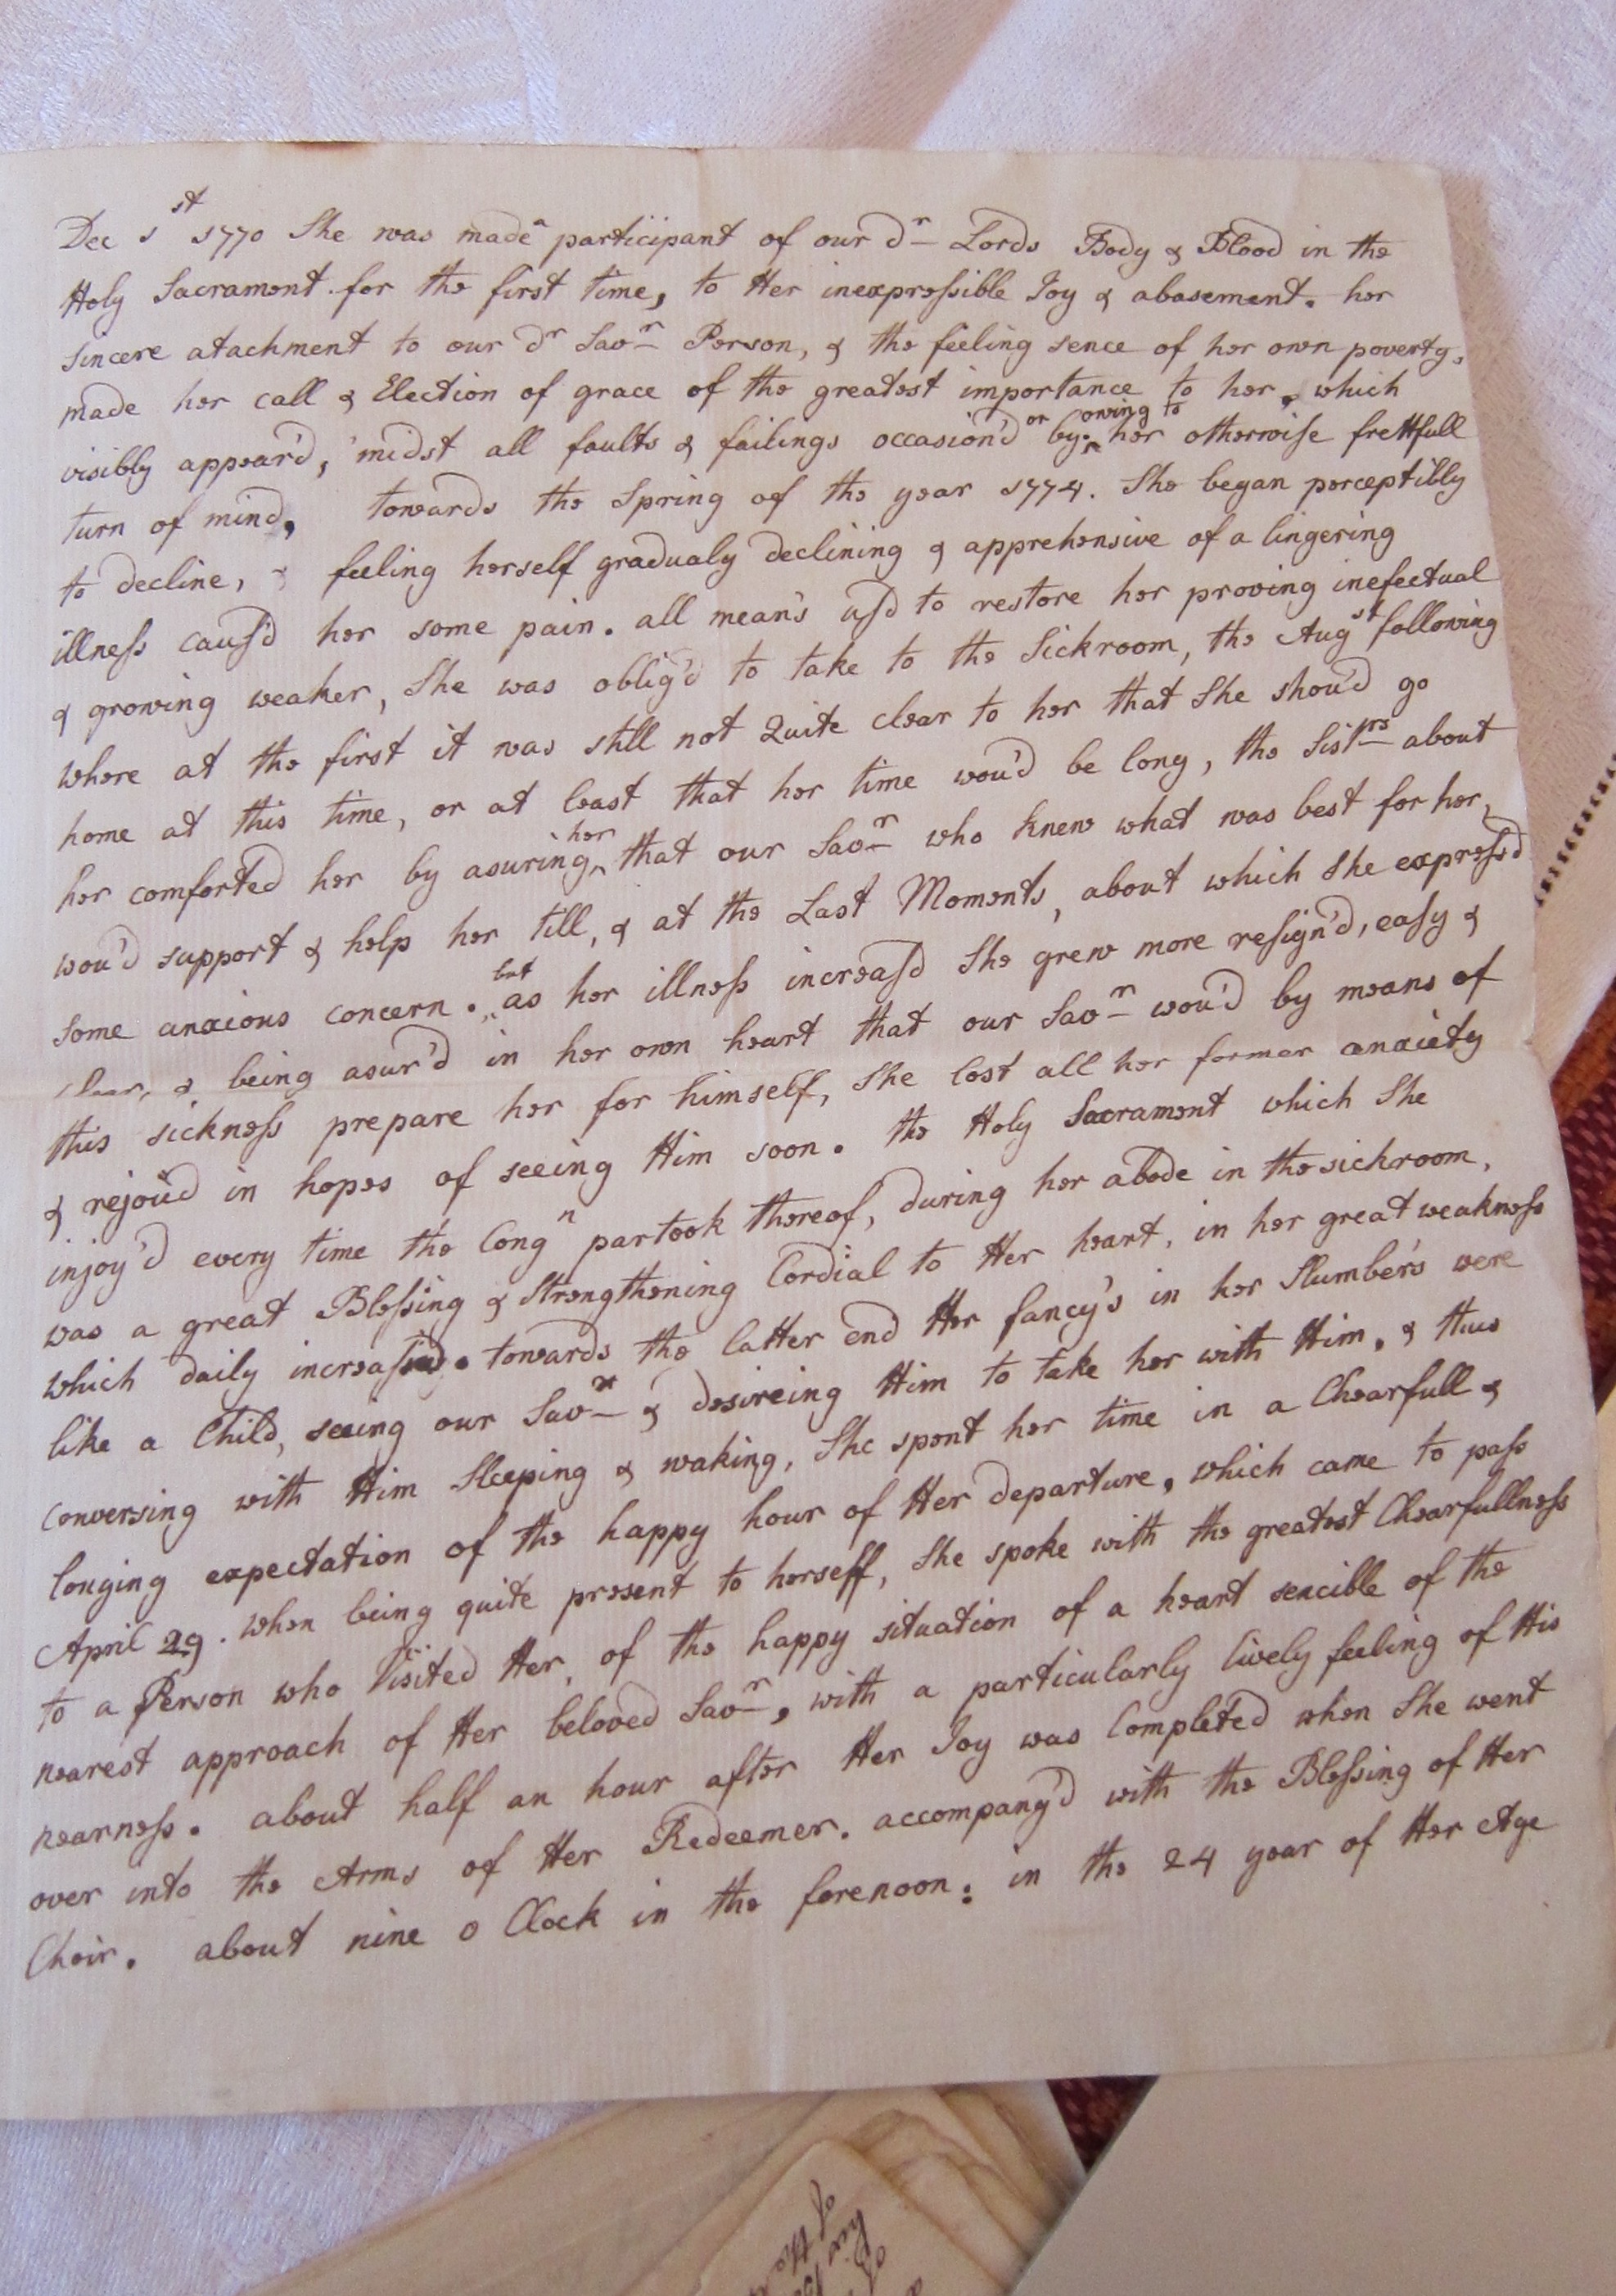 Dec 1st 1770 She was made a participant of our dr Lords Body & Blood in the
Holy Sacrament for the first time, to Her inexpressible Joy & abasement. her
sincere atachment to our dr Savr Person, & the feeling sence of her own poverty,
made her call & Election of grace of the greatest importance to her, which
visibly appear'd, 'midst all faults & failings occasion'd or by owing to her otherwise frettfull
turn of mind, towards the Spring of the year 1774. She began perceptibly
to decline, & feeling herself gradualy declining & apprehensive of a lingering
illness caus'd her some pain. all mean's us'd to restore her proving inefectual
& growing weaker, She was oblig'd to take to the Sickroom, the Augst following
where at the first it was still not Quite clear to her that She shou'd go
home at this time, or at least that her time wou'd be long, the Sistrs about
her comforted her by asuring her that our Savr who knew what was best for her,
wou'd support & help her till, & at the Last Moments, about which She express'd
some anxious concern. but as her illness increas'd She grew more resign'd, easy &
clear, & being asur'd in her own heart that our Savr wou'd by means of
this sickness prepare her for himself, She lost all her former anxiety
& rejoic'd in hopes of seeing Him soon. the Holy Sacrament which She
injoy'd every time the Congn partook thereof, during her abode in the sickroom,
was a great Blessing & Strengthening Cordial to Her heart, in her great weakness
which daily increas'd. towards the latter end Her fancy's in her Slumber's were
like a Child, seeing our Savr & desireing Him to take her with Him, & thus
conversing with Him Sleeping & waking, She spent her time in a Chearfull &
longing expectation of the happy hour of Her departure, which came to pass
April 29. when being quite present to herself, She spoke with the greatest Chearfullness
to a Person who Visited Her, of the happy situation of a heart sencible of the
nearest approach of Her beloved Savr, with a particularly lively feeling of His
nearness. about half an hour after Her Joy was Completed when She went
over into the Arms of Her Redeemer. accompany'd with the Blessing of Her
Choir. about nine o Clock in the forenoon: in the 24 year of Her Age